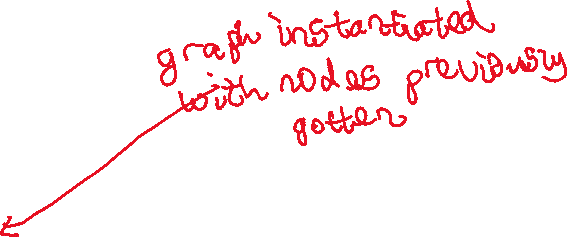 graph instantiated
with nodes previously
gotten